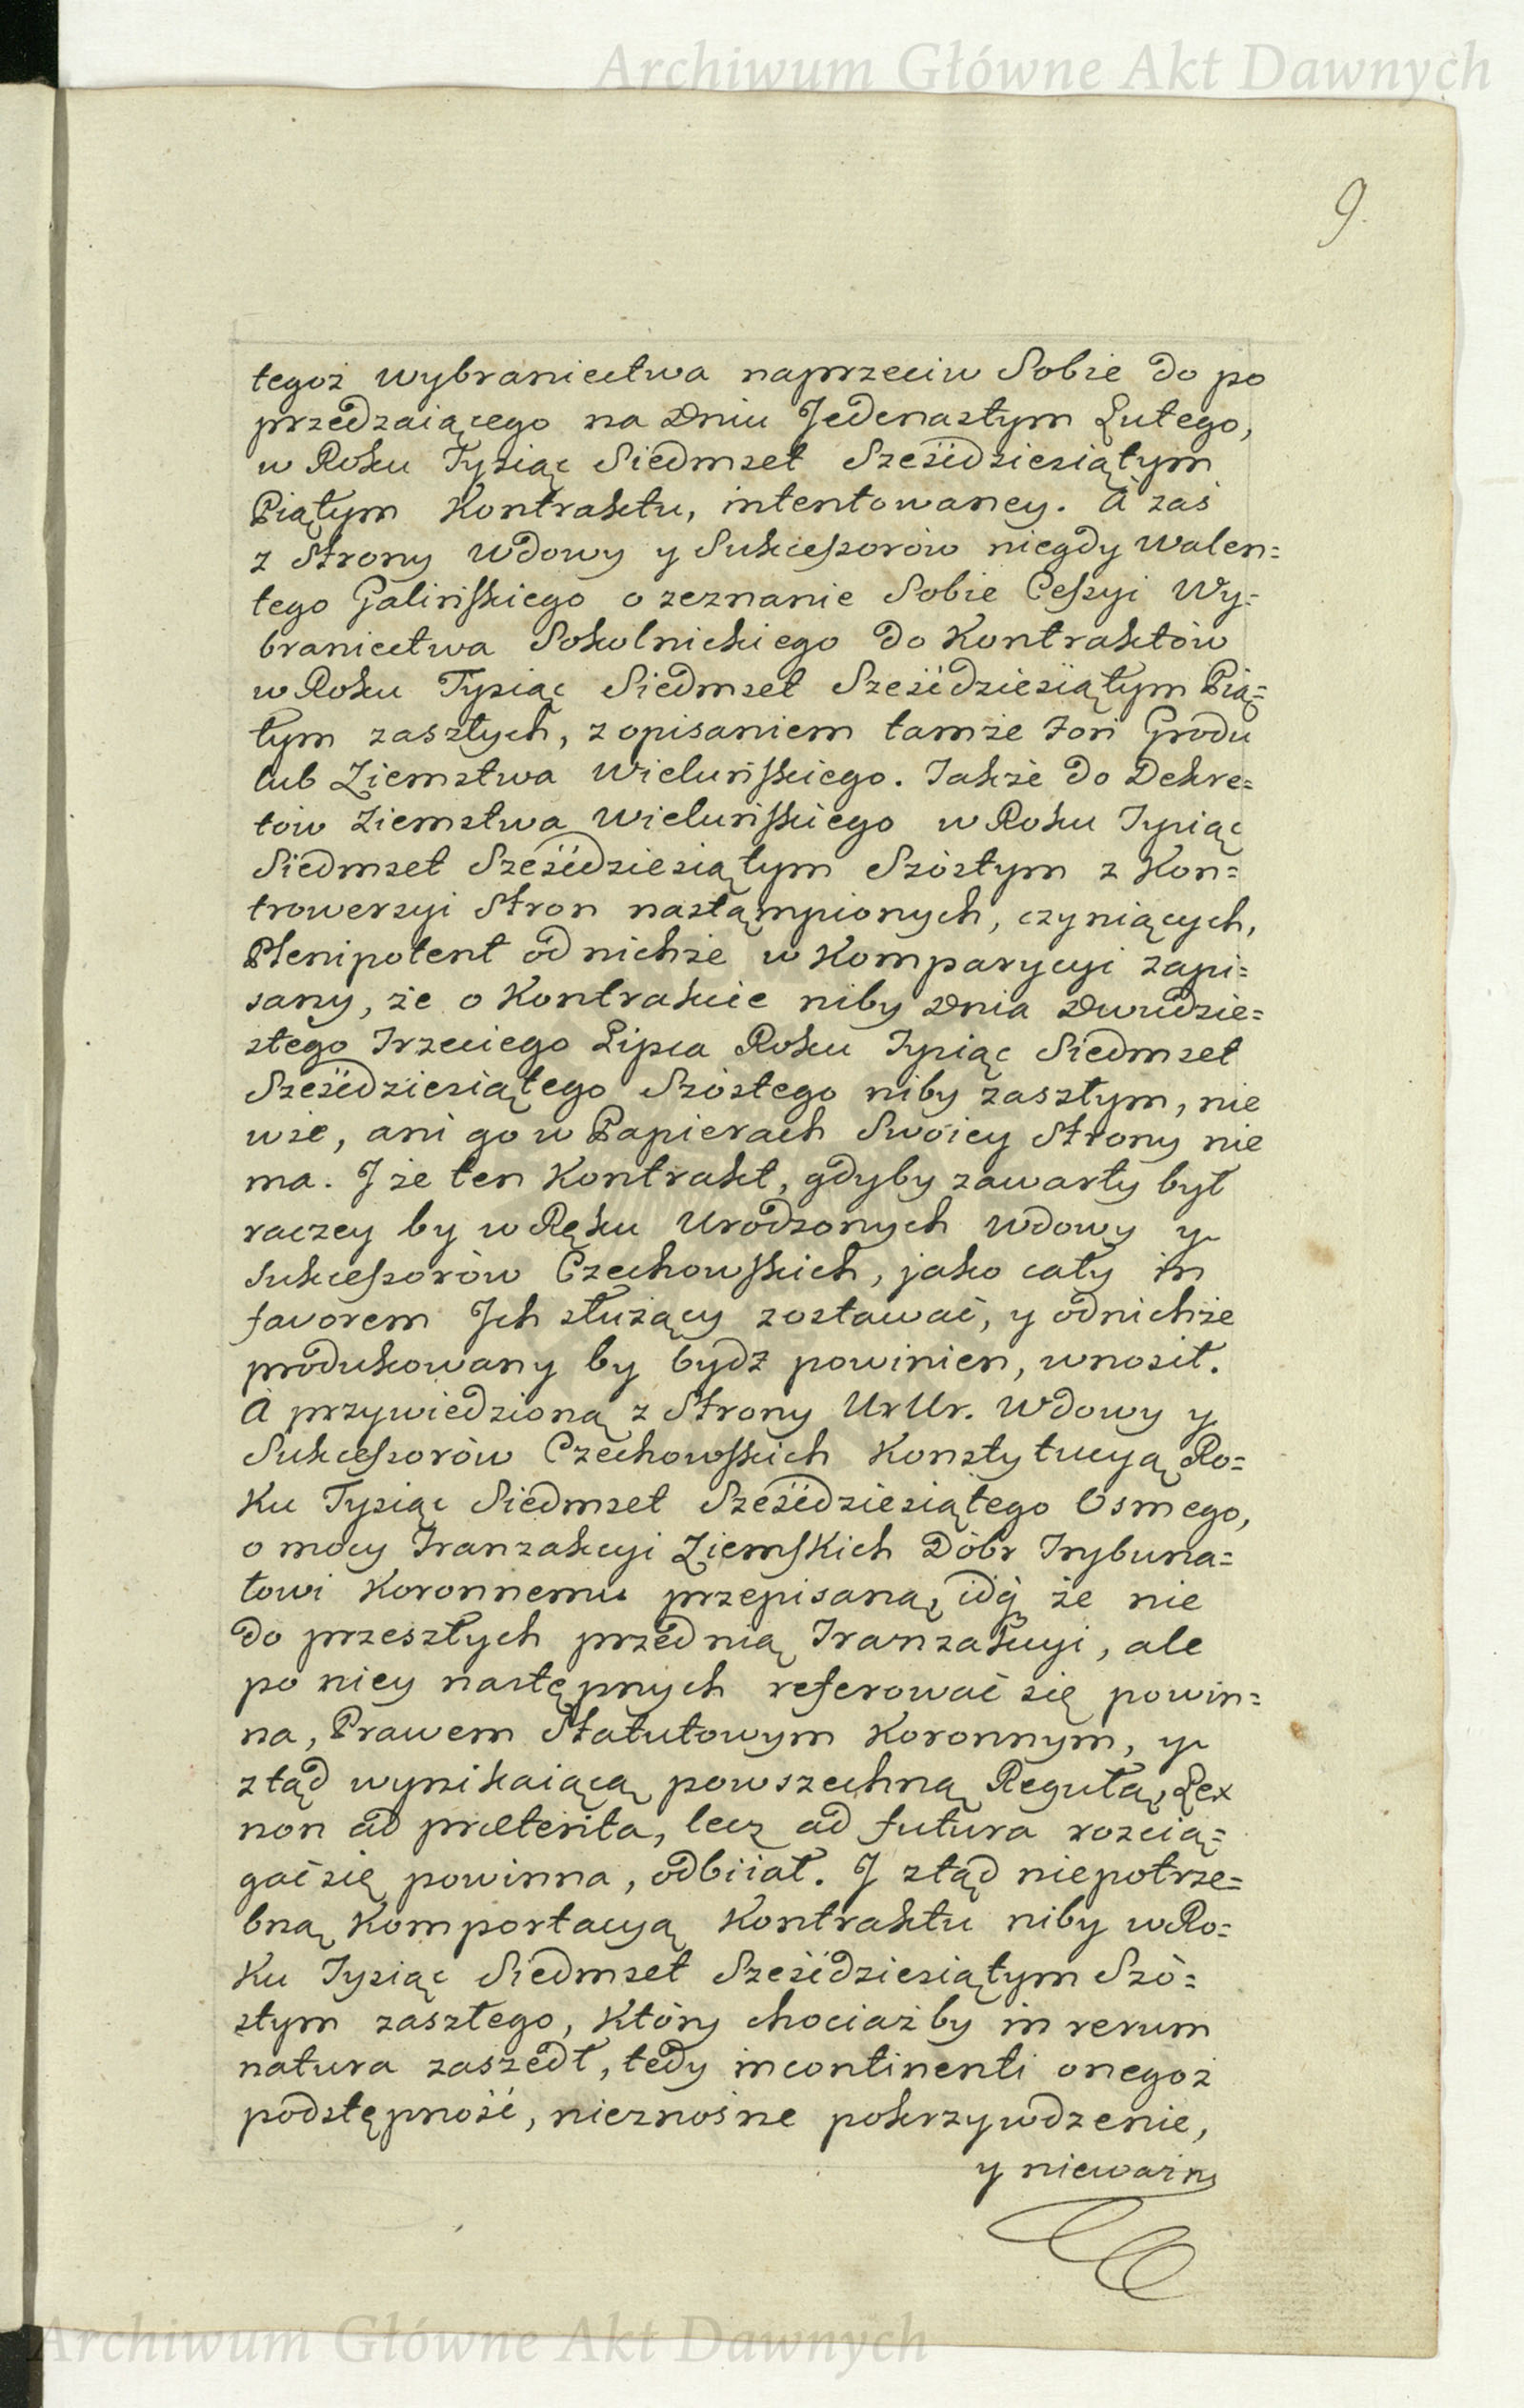 Archiwum Główne Akt Dawnych
9.
tegoż wybraniectwa naprzeciw Sobie do po
przedzaiącego na Dniu Jedenastym Lutego,
w Roku Tysiąc Siedmset Sześćdziesiątym
Piątym Kontraktu, intentowaney. A zaś
z Strony Wdowy y Sukceszorów niegdy Walen=
tego Galińskiego o zeznanie Sobie Ceszyi Wy=
braniectwa Sokolnickiego do Kontraktów
w Roku Tysiąc Siedmset Sześćdziesiątym Pią=
tym zaszłych, z opisaniem tamże Fori Grodu
lub Ziemstwa Wieluńskiego. Także do Dekre=
tów Ziemstwa Wieluńskiego w Roku Tysiąc
Siedmset Sześćdziesiątym Szóstym z Kon=
trowerzyi Stron nastąmpionych, czyniących,
Plenipotent od nichże w Komparycyi zapi=
sany, że o Kontrakcie niby Dnia Dwudzie=
stego Trzeciego Lipca Roku Tysiąc Siedmset
Sześćdziesiątego Szóstego niby zaszłym, nie
wie, ani go w Papierach Swoiey Strony nie
ma. J że ten Kontrakt, gdyby zawarty był
raczey by w Ręku Urodzonych Wdowy y
Sukceszorów Czechowskich, jako cały in
favorem Jch służący zostawać, y od nichże
produkowany by bydź powinien, wnosił.
A przywiedzioną z Strony UrUr. Wdowy y
Sukceszorów Czechowskich Konstytucyą Ro=
ku Tysiąc Siedmset Sześćdziesiątego Osmego,
o mocy Tranzakcyi Ziemskich Dóbr Trybuna=
łowi Koronnemu przepisaną, idą że nie
do przeszłych przed nią Tranzakcyi, ale
po niey następnych referować się powin=
na, Prawem Statutowym Koronnym, y
ztąd wynikaiącą powszechną Regułą, Lex
non ad præterita, lecz ad futura rozcią=
gać się powinna, odbiiał. J ztąd niepotrze=
bną Komportacyą Kontraktu niby w Ro=
ku Tysiąc Siedmset Sześćdziesiątym Szó=
stym zaszłego, Który chociażby in rerum
natura zaszedł, tedy incontinenti onegoż
podstępność, nieznośne pokrzywdzenie,
y nieważny
Archiwum Główne Akt Dawnych